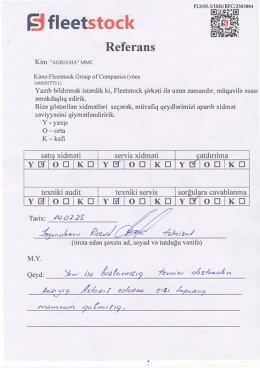 FLS/03.3/IMS/RFC/2303084
fleetstock
Referans
Kim "AGRIASIA" MMC
Kimə Fleetstock Group of Companies (vöen
1603557711)
Yazıb bildirmək istərdik ki, Fleetstock şirkəti ilə uzun zamandır, müqavilə əsası
əməkdaşlıq edirik.
Bizə göstərilən xidmətləri seçərək, müvafiq qeydlərimizi aparıb xidmət
səviyyəsini qiymətləndirik.
Y - yaxşı
O – orta
K – kafi
satış xidməti servis xidməti çatdırılma
Y O K Y O K Y O K
texniki audit texniki servis sorğulara cavablanma
Y O K Y O K Y O K
Tarix: 14.07.25
təchizat
(imza edən şəxsin ad, soyad və tutduğu vəzifə)
M.Y.
Qeyd: Yeni işə başlamışıq
məmnun qalmışıq.